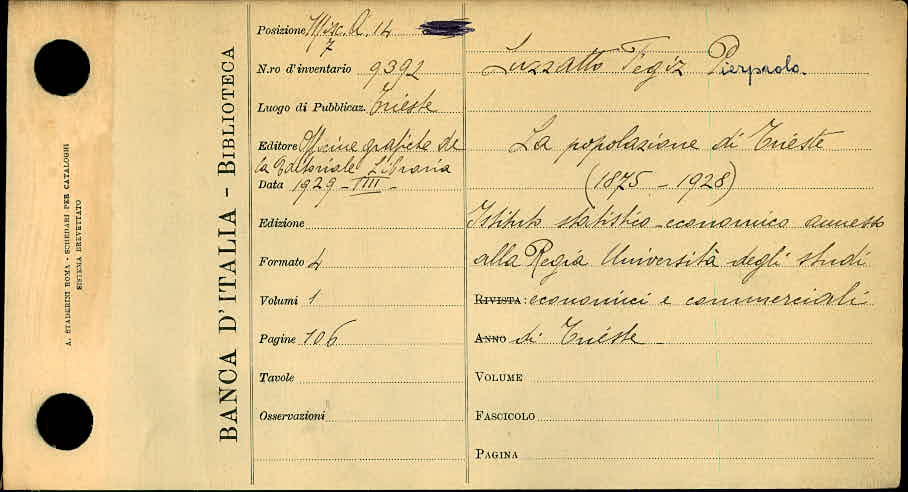 A. STADERINI ROMA - SCHEDARI PER CATALOGHI
SISTEMA BREVETTATO
BANCA D'ITALIA - BIBLIOTECA
Posizione Misc. Q. 14
7
N.ro d'inventario 9392
Luogo di Pubblicaz. Trieste
Editore Officine grafiche de
la Editoriale Libraria
Data 1929 - VIII -
Edizione
Formato 4
Volumi 1
Pagine 106
Tavole
Osservazioni
Luzzatto Fegiz Pierpaolo.
La popolazione di Trieste
(1875 - 1928)
Istituto statistico-economico annesso
alla Regia Università degli studi
RIVISTA: economici e commerciali
ANNO di Trieste -
VOLUME
FASCICOLO
PAGINA